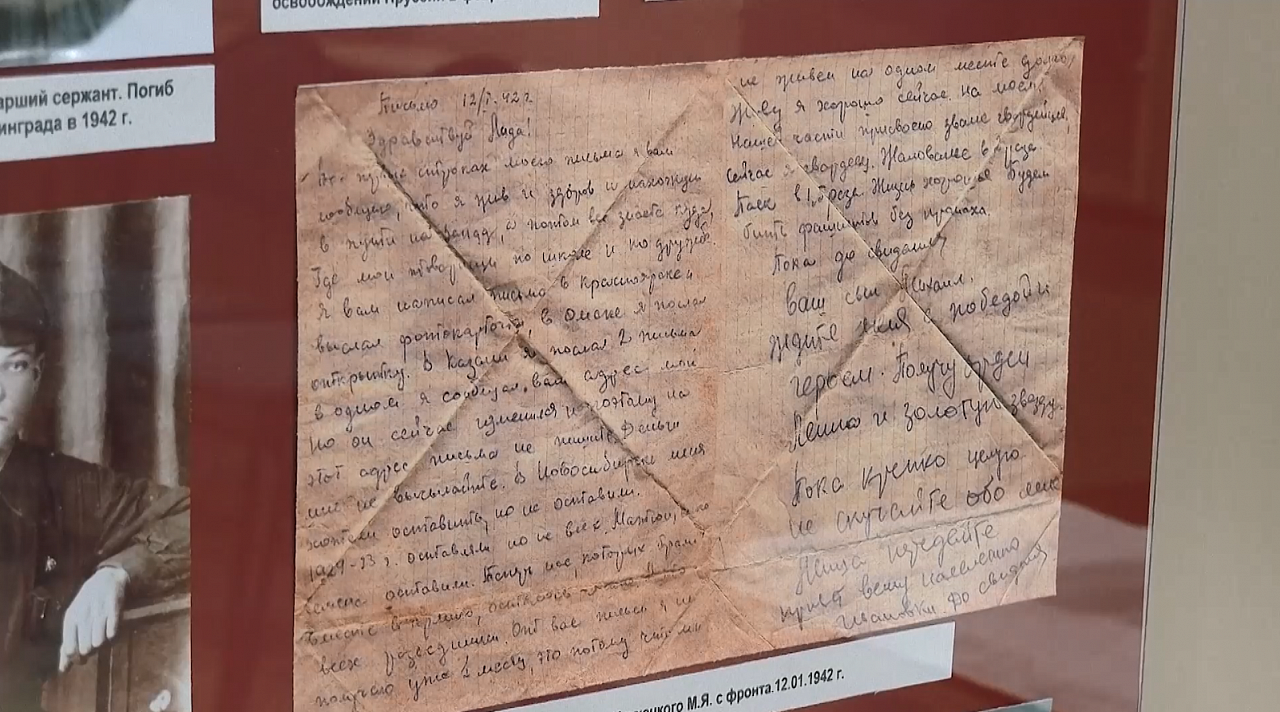 арший сержант. Погиб
инграда в 1942 г.
Письмо 12/I. 42 г.
Здравствуй Лида!
строках моего письма я вам
сообщаю, что я жив и здоров и нахожусь
в пути на запад, а потом все знаете куда,
Где мои товарищи по школе и по дружбе.
Я вам написал письмо в Красноярске и
выслал фотокарточку, в Омске я послал
открытку. В Казани я послал 2 письма
в одном я сообщал вам адрес мой
но он сейчас изменился и поэтому на
этот адрес письма не пишите Деньги
мне не высылайте. В Новосибирске меня
хотели оставить, но не оставили.
1924-23 г. оставляли но не всех
оставили. Теперь нас, которых брали
вместе
всех От вас письма я не
получаю уже 2 месяц, это потому что мы
не живем на одном месте долго
Живу я хорошо сейчас на
Нашей части присвоено звание гвардейцев,
сейчас я гвардеец. Жалованье в раза
Паек в раза. Жизнь хорошая Будем
бить фашистов без промаха.
Пока до свидания
ваш сын Михаил.
ждите меня с победой и
героем. Получу орден
Ленина и золотую звезду.
Пока крепко целую
не скучайте обо мне
передайте
привет всему населению
Ивановки До свидания
М.Я. с фронта.12.01.1942 г.